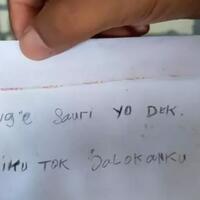 Sauri YO DEK.
IKU TOK JaLOKANKU